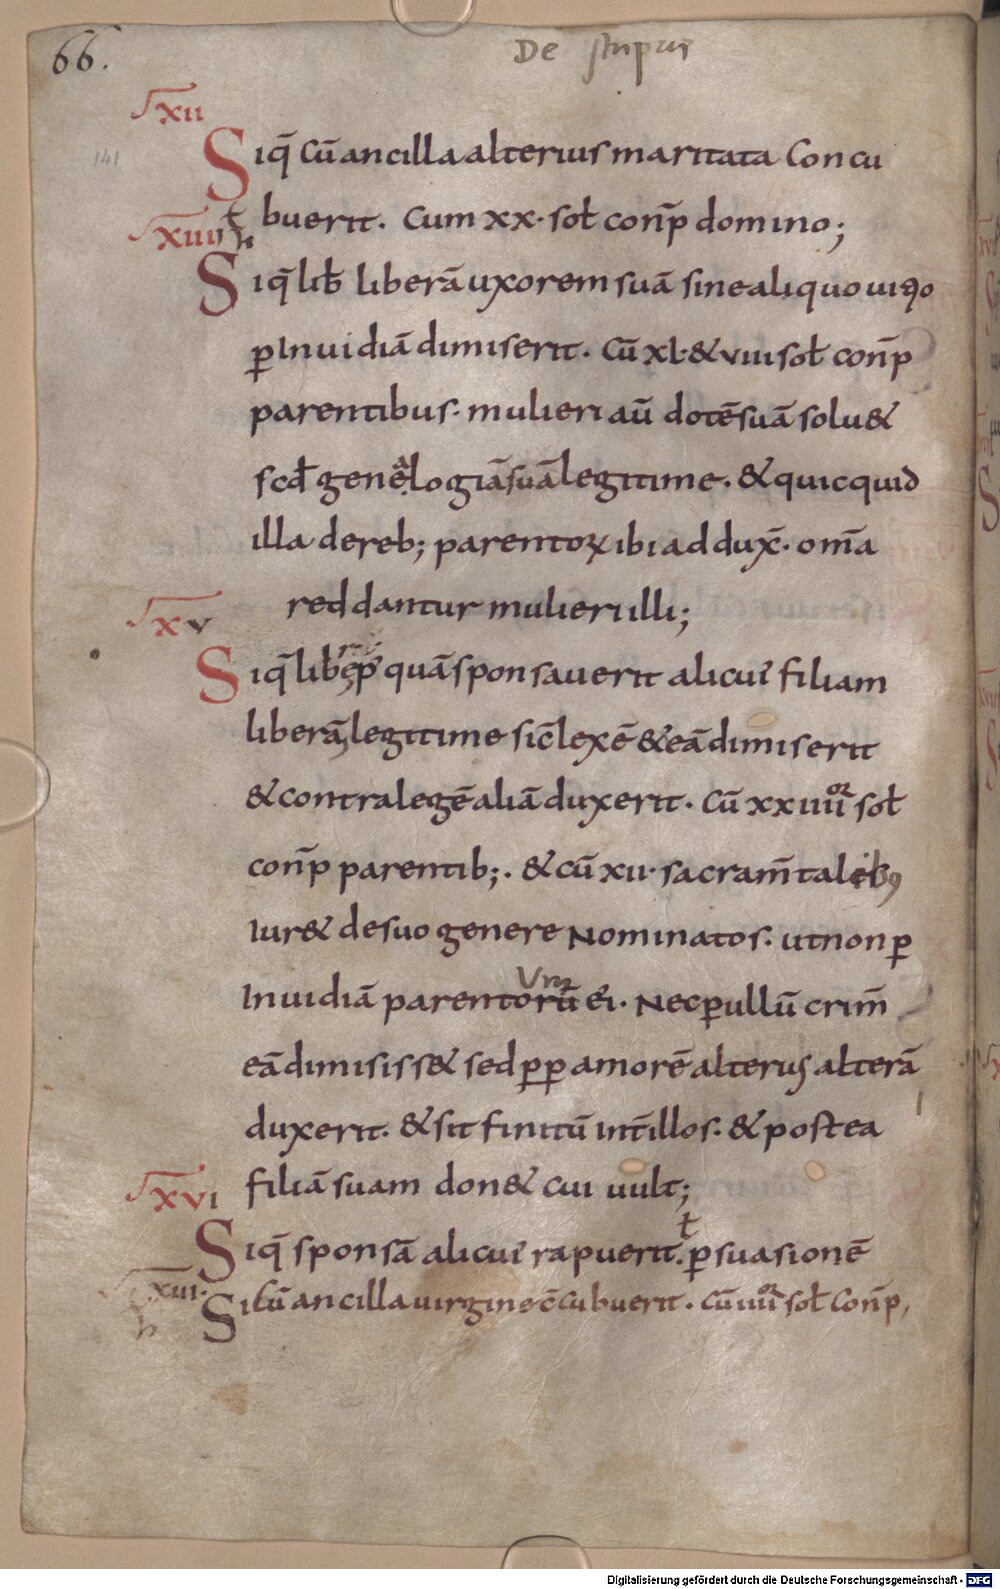 66.
De stupris
XII
141
Siq̄ Cū ancilla alterius maritata Concu
buerit. Cum XX· sol̄ conp̄ domino;
XIIII
Siq̄ lib̄ liberā uxorem suā sine aliquo uitio
p̱ Inuidiā dimiserit. Cū XL·& VIII sol̄ conp̄
parentibus· mulieri aū dotē suā solu&
scd̄ genealogiā suā legitime. & quicquid
illa de reb; parentoꝝ ibi addux̄· om̄a
reddantur mulieri illi;
XV
Siq̄ lib̄ p̄ quā sponsauerit alicui' filiam
liberā legitime sic̄ lex ē & eā dimiserit
& contra legē aliā duxerit. Cū XXIIII sol̄
conp̄ parentib;. & cū XII· sacram̄talib9
Iur& de suo genere Nominatos· ut non p̱
Inuidiā parentorū ei'. Nec p̱ ullū crim̄
eā dimisiss& sed p̱p̱ amorē alterius alterā
duxerit. & sit finitū int̄ illos· & postea
filiā suam don& cui uult;
XVI
Siq̄ sponsā alicui' rapuerit. ł p̱suasionē
XVII·
Si Cū ancilla uirgine c̄cubuerit. Cū IIII sol̄ Conp̄,
Digitalisierung gefördert durch die Deutsche Forschungsgemeinschaft - DFG